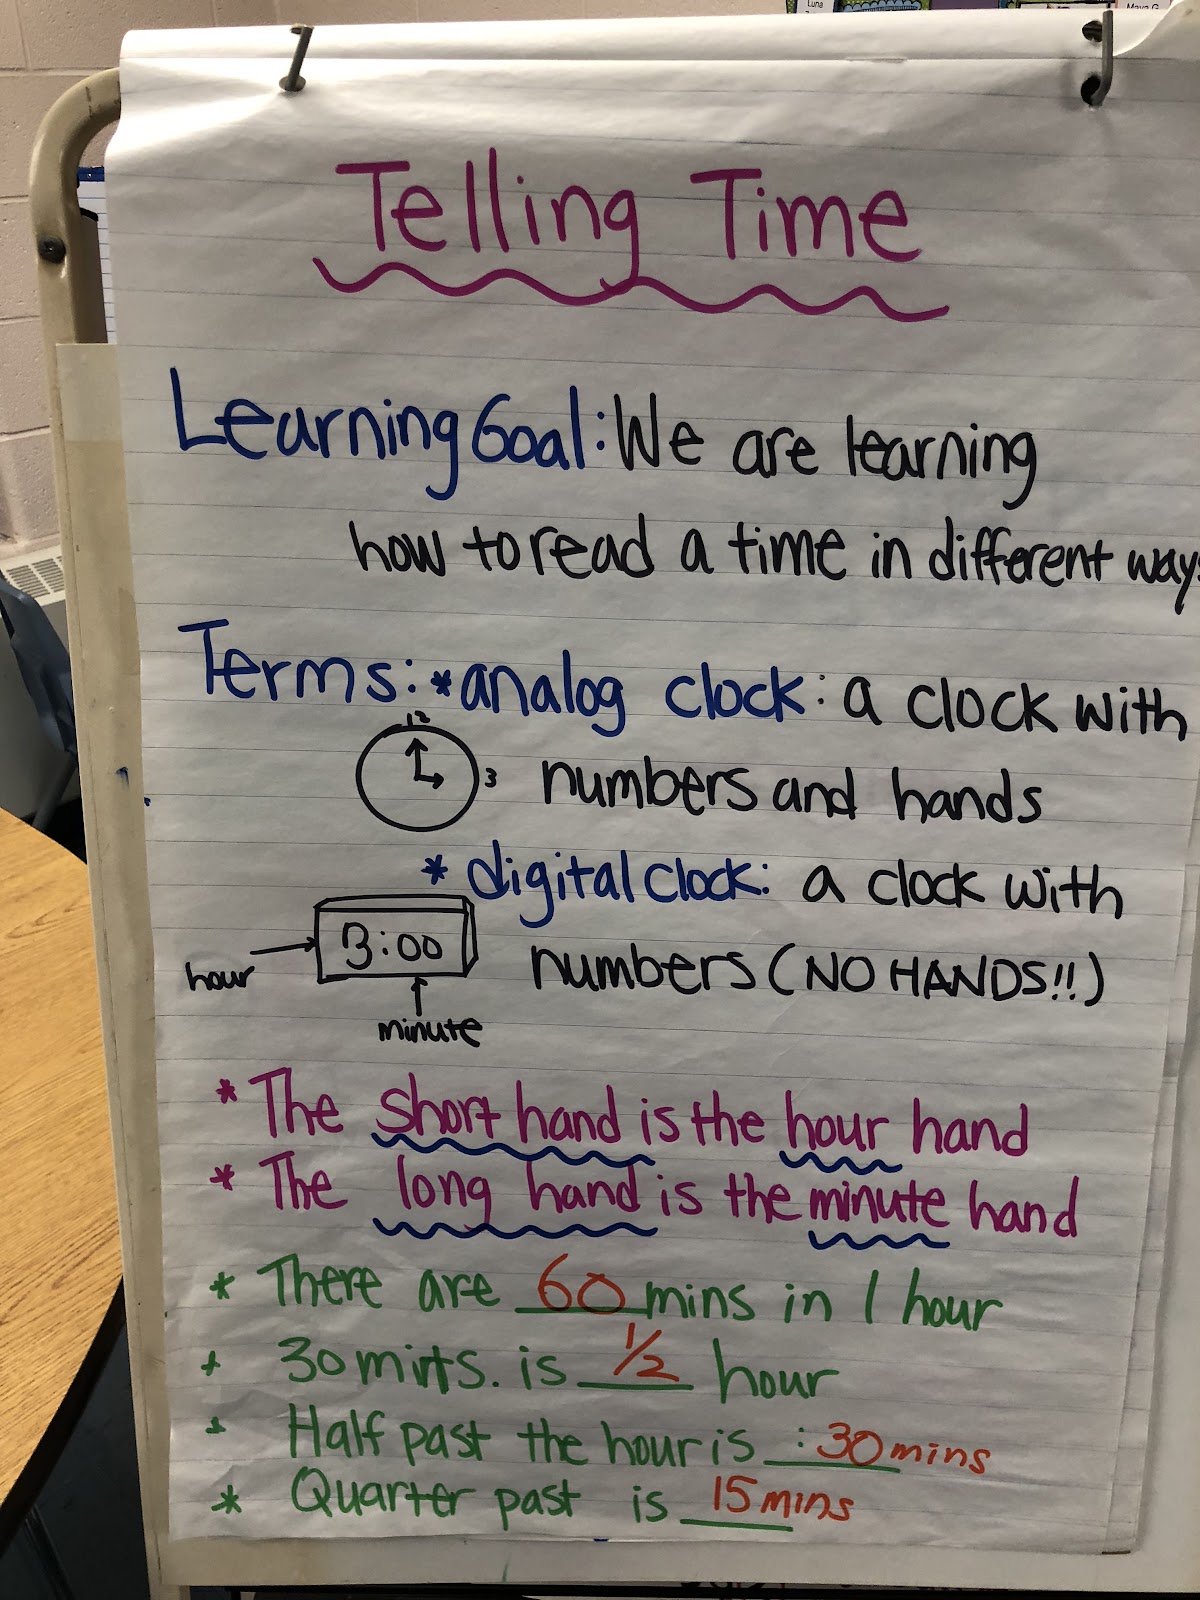 Luna
Maya G.
Telling Time
Learning Goal: We are learning
how to read a time in different ways
Terms: *analog clock: a clock with
12
3
numbers and hands
* digital clock: a clock with
3:00
hour
numbers (NO HANDS!!)
minute
* The short hand is the hour hand
* The long hand is the minute hand
* There are 60 mins in 1 hour
* 30 mins. is 1/2 hour
* Half past the hour is :30 mins
* Quarter past is 15 mins